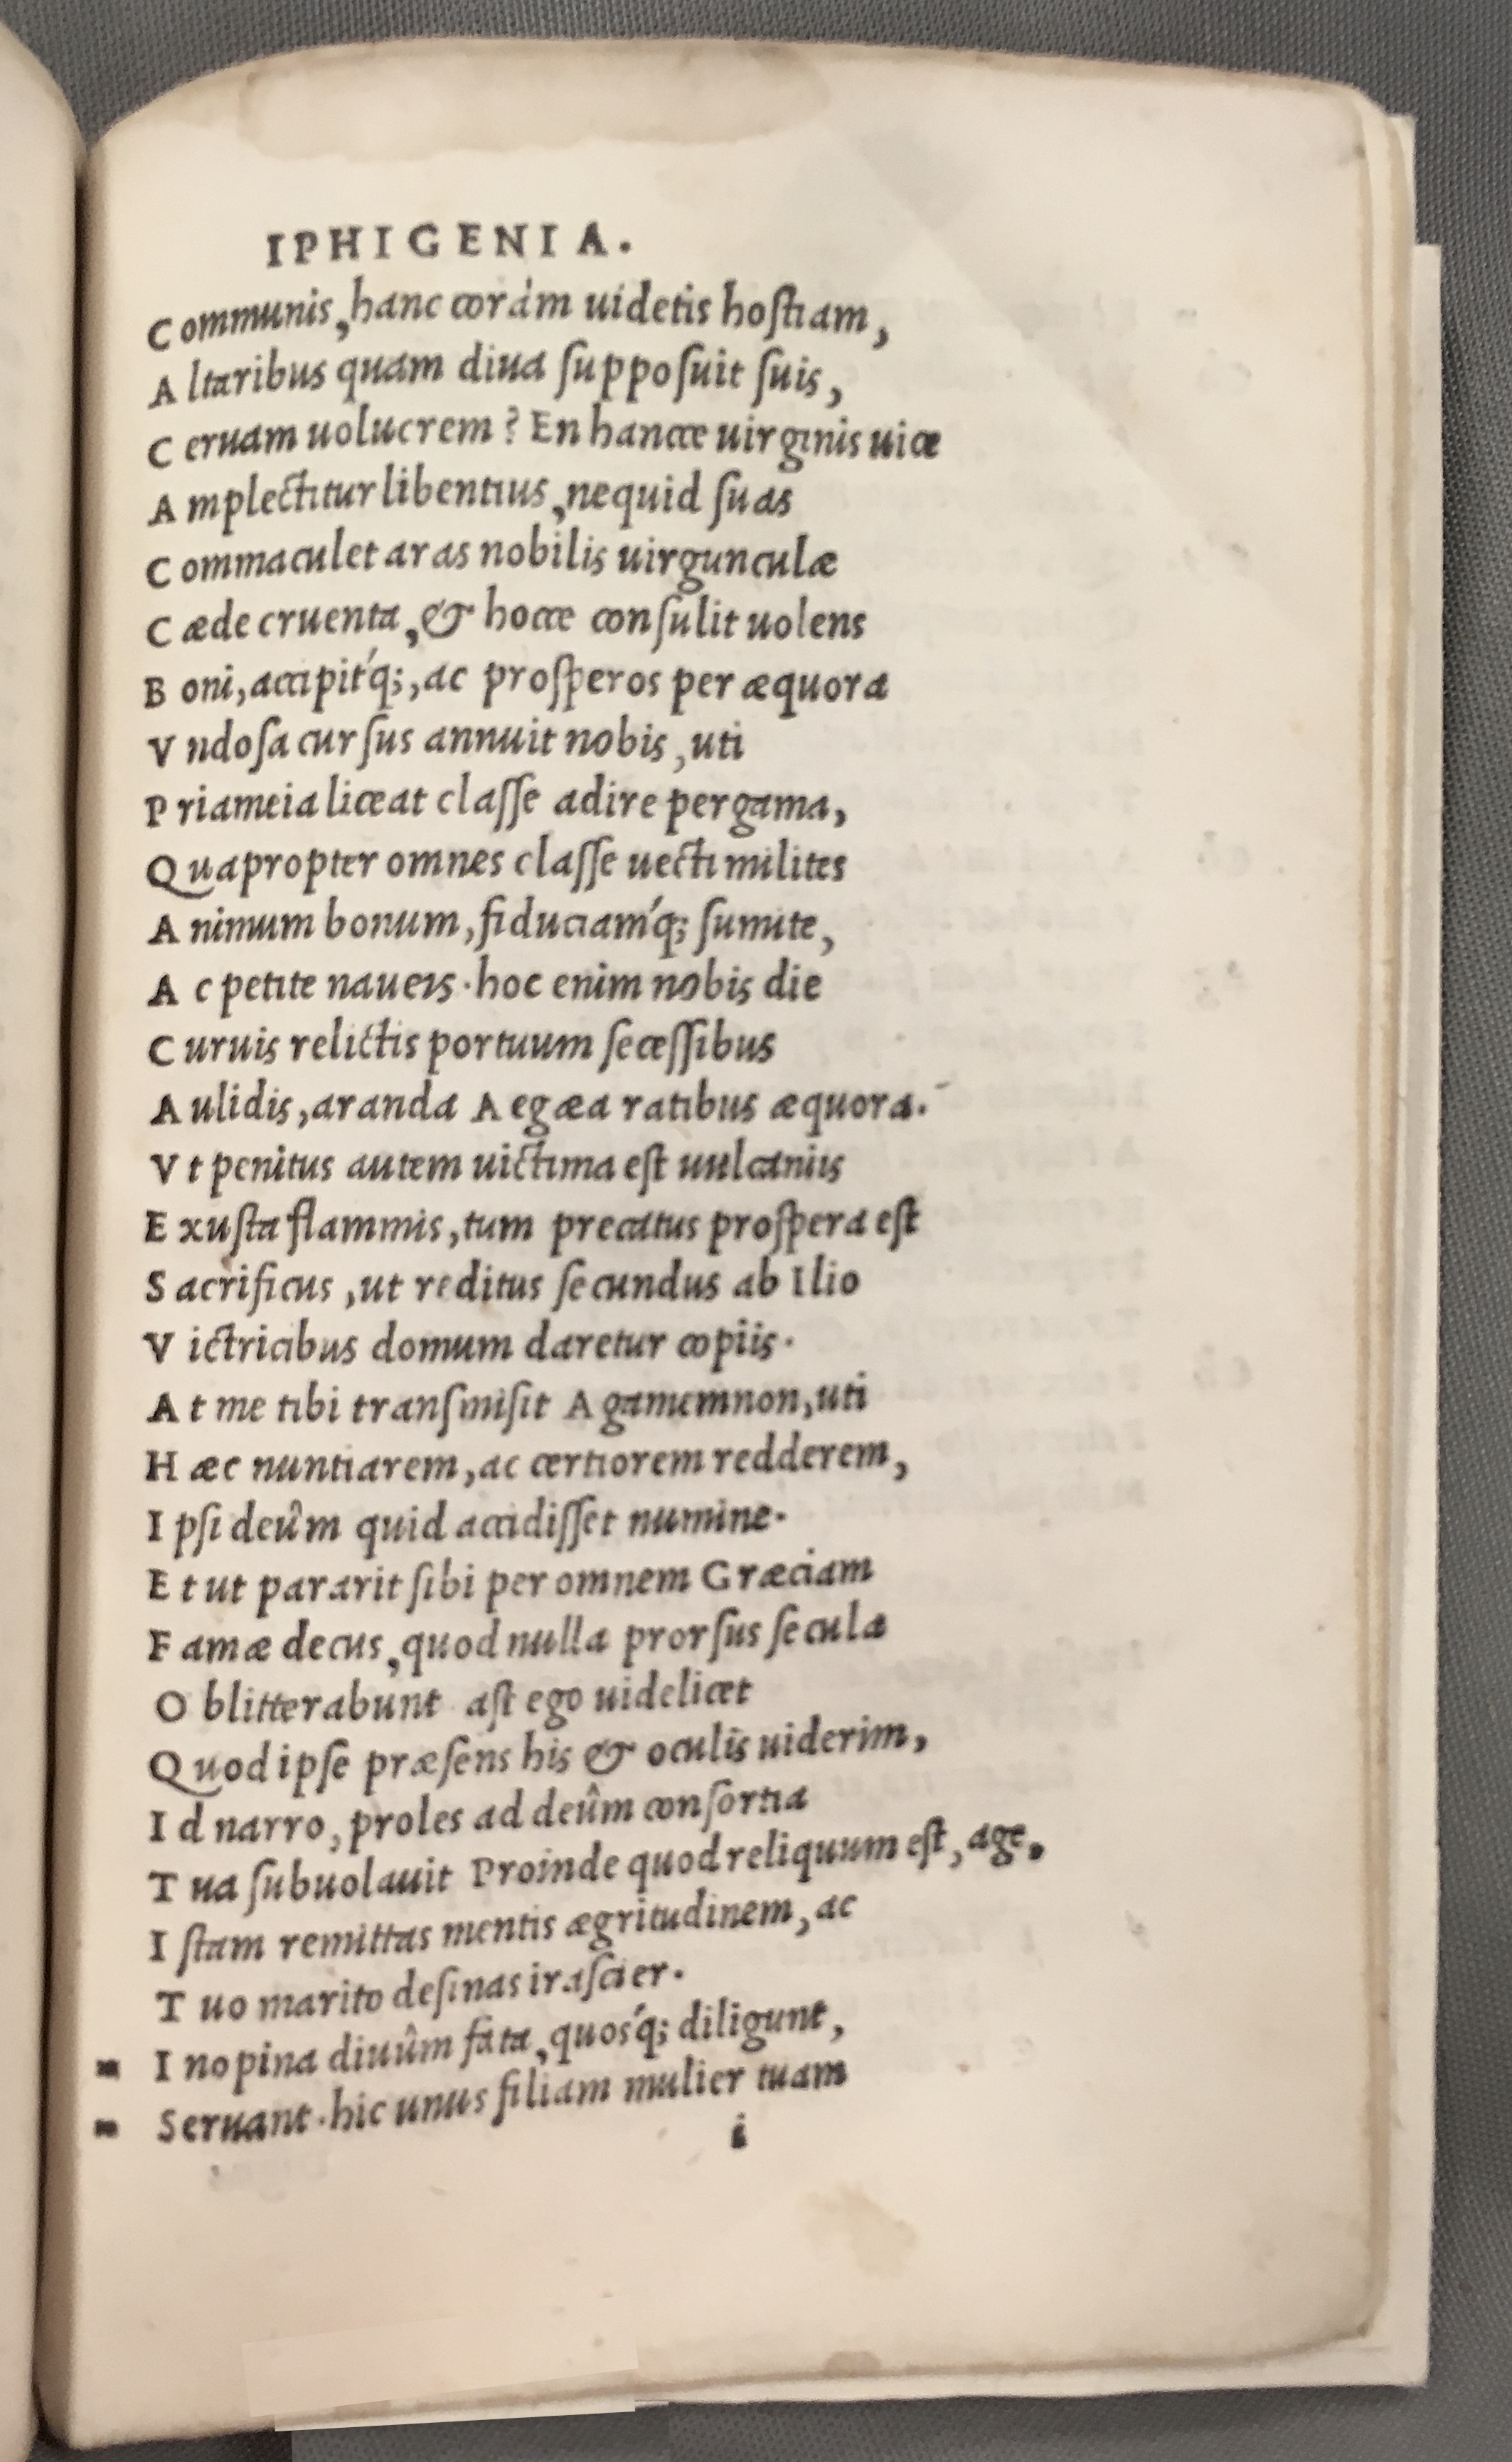 IPHIGENIA.
Communis, hanc coràm uidetis hostiam,
Altaribus quam diua supposuit suis,
Ceruam uolucrem? En hancce uirginis uice
Amplectitur libentius, nequid suas
Commaculet aras nobilis uirgunculæ
Cæde cruenta, & hocce consulit uolens
Boni, accipit'q;, ac prosperos per æquora
Vndosa cursus annuit nobis, uti
Priameia liceat classe adire pergama,
Quapropter omnes classe uecti milites
Animum bonum, fiduciam'q; sumite,
Ac petite naueis. hoc enim nobis die
Curuis relictis portuum secessibus
Aulidis, aranda Aegæa ratibus æquora.
Vt penitus autem uictima est uulcaniis
Exusta flammis, tum precatus prospera est
Sacrificus, ut reditus secundus ab Ilio
Victricibus domum daretur copiis.
At me tibi transmisit Agamemnon, uti
Hæc nuntiarem, ac certiorem redderem,
Ipsi deûm quid accidisset numine.
Et ut pararit sibi per omnem Græciam
Famæ decus, quod nulla prorsus secula
Oblitterabunt ast ego uidelicet
Quod ipse præsens his & oculis uiderim,
Id narro, proles ad deûm consortia
Tua subuolauit Proinde quod reliquum est, age,
Istam remittas mentis ægritudinem, ac
Tuo marito desinas irascier.
" Inopina diuûm fata, quos'q; diligunt,
" Seruant. hic unus filiam mulier tuam
i